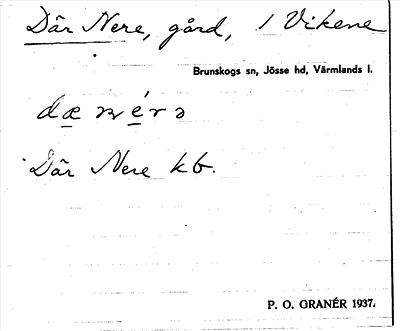 Där Nere, gård, / Vikene
Brunskogs sn, Jösse hd, Värmlands l.
dæ néra
Där Nere kb.
P. O. GRANÉR 1937.